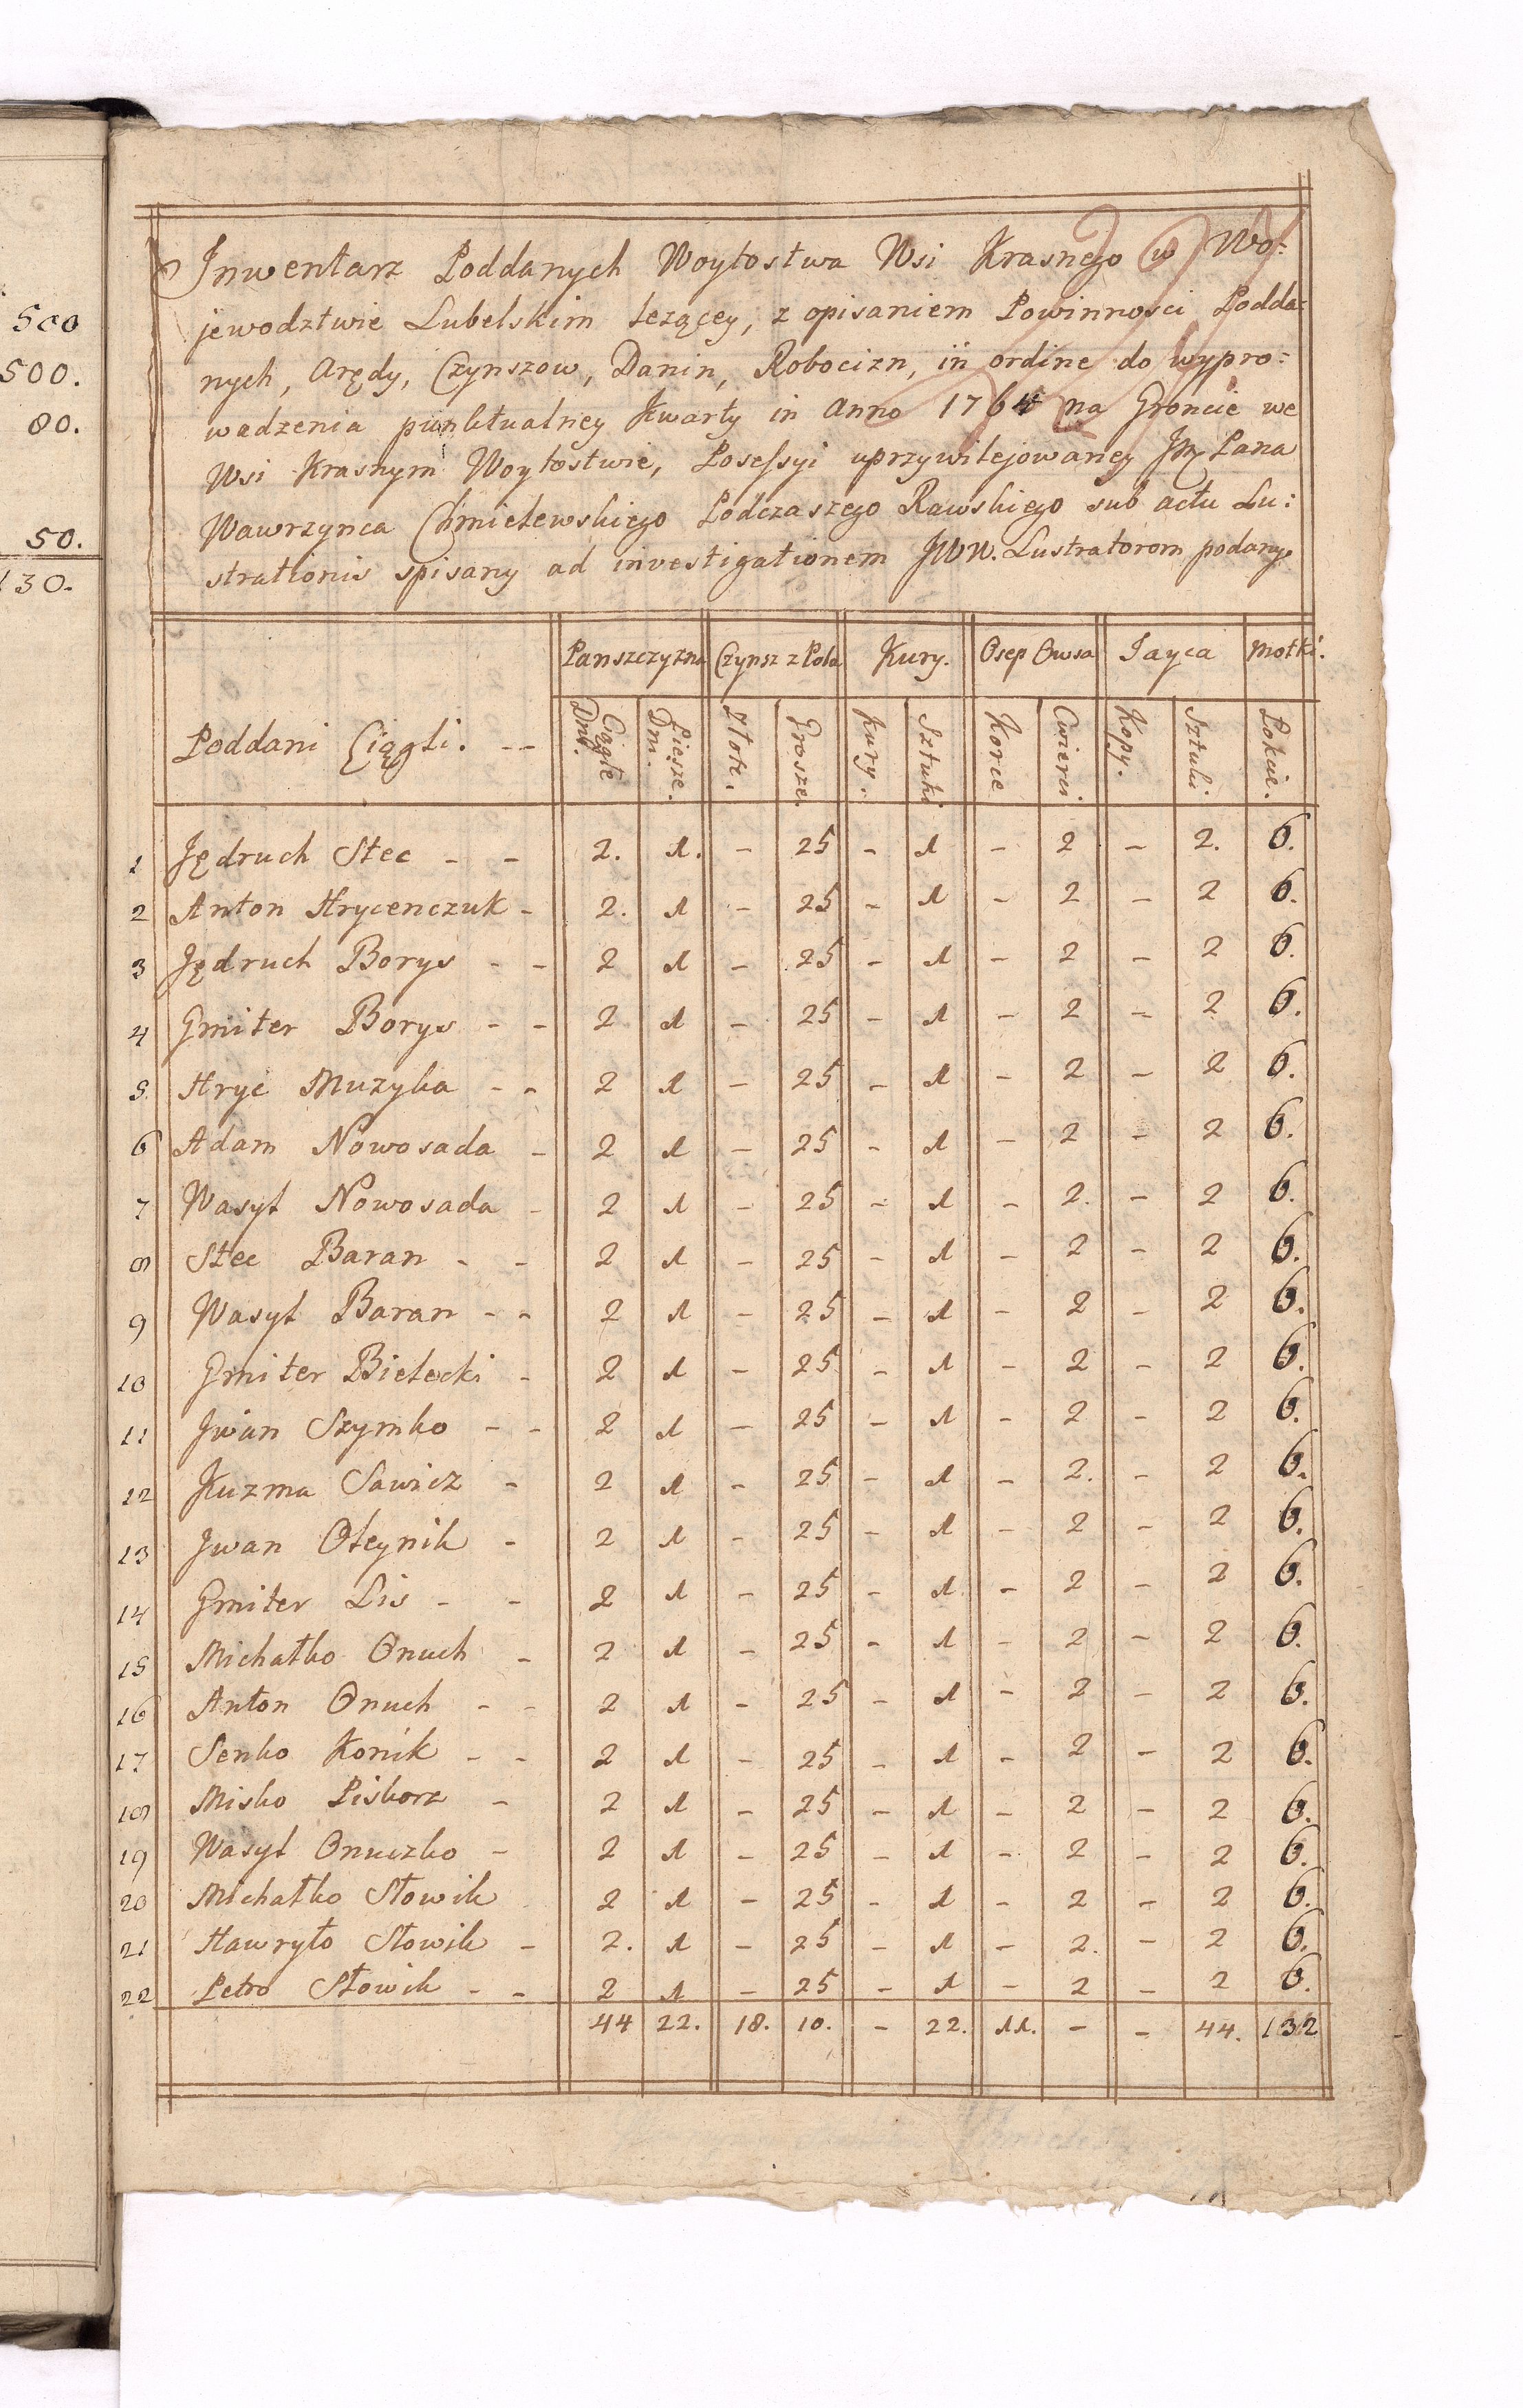 500
500.
80.
50.
130.
Inwentarz Poddanych Woytostwa Wsi Krasnego w Wo:
jewodztwie Lubelskim leżącey, z opisaniem Powinności Podda:
nych, Arędy, Czynszow, Danin, Robocizn, in ordine do wypro:
wadzenia punktualney Kwarty in Anno 1764 na Groncie we
Wsi Krasnym Woytostwie, Possessyi uprzywilejowaney Jmć Pana
Wawrzynca Chmielewskiego Podczaszego Rawskiego sub actu Lu:
strationis spisany ad investigationem JWW. Lustratorom podany.
Panszczyzna Czynsz z Pola Kury. Osep Owsa Jayca Motki.
Poddani Ciągli. -- Dni Ciągłe Dni. Piesze. Złote. Grosze. Kury. Sztuki Korce Cwierci Kopy. Sztuki Łokcie.
1 Jędruch Stec - - 2. 1. - 25 - 1 - 2 - 2. 6.
2 Anton Hrycenczuk - 2. 1 - 25 - 1 - 2 - 2 6.
3 Jędruch Borys - - 2 1 - 25 - 1 - 2 - 2 6.
4 Gmiter Borys - - 2 1 - 25 - 1 - 2 - 2 6.
5 Hryć Muzyka - - 2 1 - 25 - 1 - 2 - 2 6.
6 Adam Nowosada - 2 1 - 25 - 1 - 2 - 2 6.
7 Wasyl Nowosada - 2 1 - 25 - 1 - 2. - 2 6.
8 Stec Baran - - 2 1 - 25 - 1 - 2 - 2 6.
9 Wasyl Baran - - 2 1 - 25 - 1 - 2 - 2 6.
10 Gmiter Bielecki - 2 1 - 25 - 1 - 2 - 2 6.
11 Jwan Szymko - - 2 1 - 25 - 1 - 2 - 2 6.
12 Kuzma Sawicz - 2 1 - 25 - 1 - 2. - 2 6.
13 Jwan Oleynik - 2 1 - 25 - 1 - 2 - 2 6.
14 Gmiter Lis - - 2 1 - 25 - 1 - 2 - 2 6.
15 Michałko Onuch - 2 1 - 25 - 1 - 2 - 2 6.
16 Anton Onuch - - 2 1 - 25 - 1 - 2 - 2 6.
17 Senko Konik - - 2 1 - 25 - 1 - 2 - 2 6.
18 Misko Piskorz - 2 1 - 25 - 1 - 2 - 2 6.
19 Wasyl Onuczko - 2 1 - 25 - 1 - 2 - 2 6.
20 Michałko Słowik 2 1 - 25 - 1 - 2 - 2 6.
21 Hawryło Słowik - 2. 1 - 25 - 1 - 2. - 2 6.
22 Petro Słowik - - 2 1 - 25 - 1 - 2 - 2 6.
44 22. 18. 10. - 22. 11. - - 44. 132